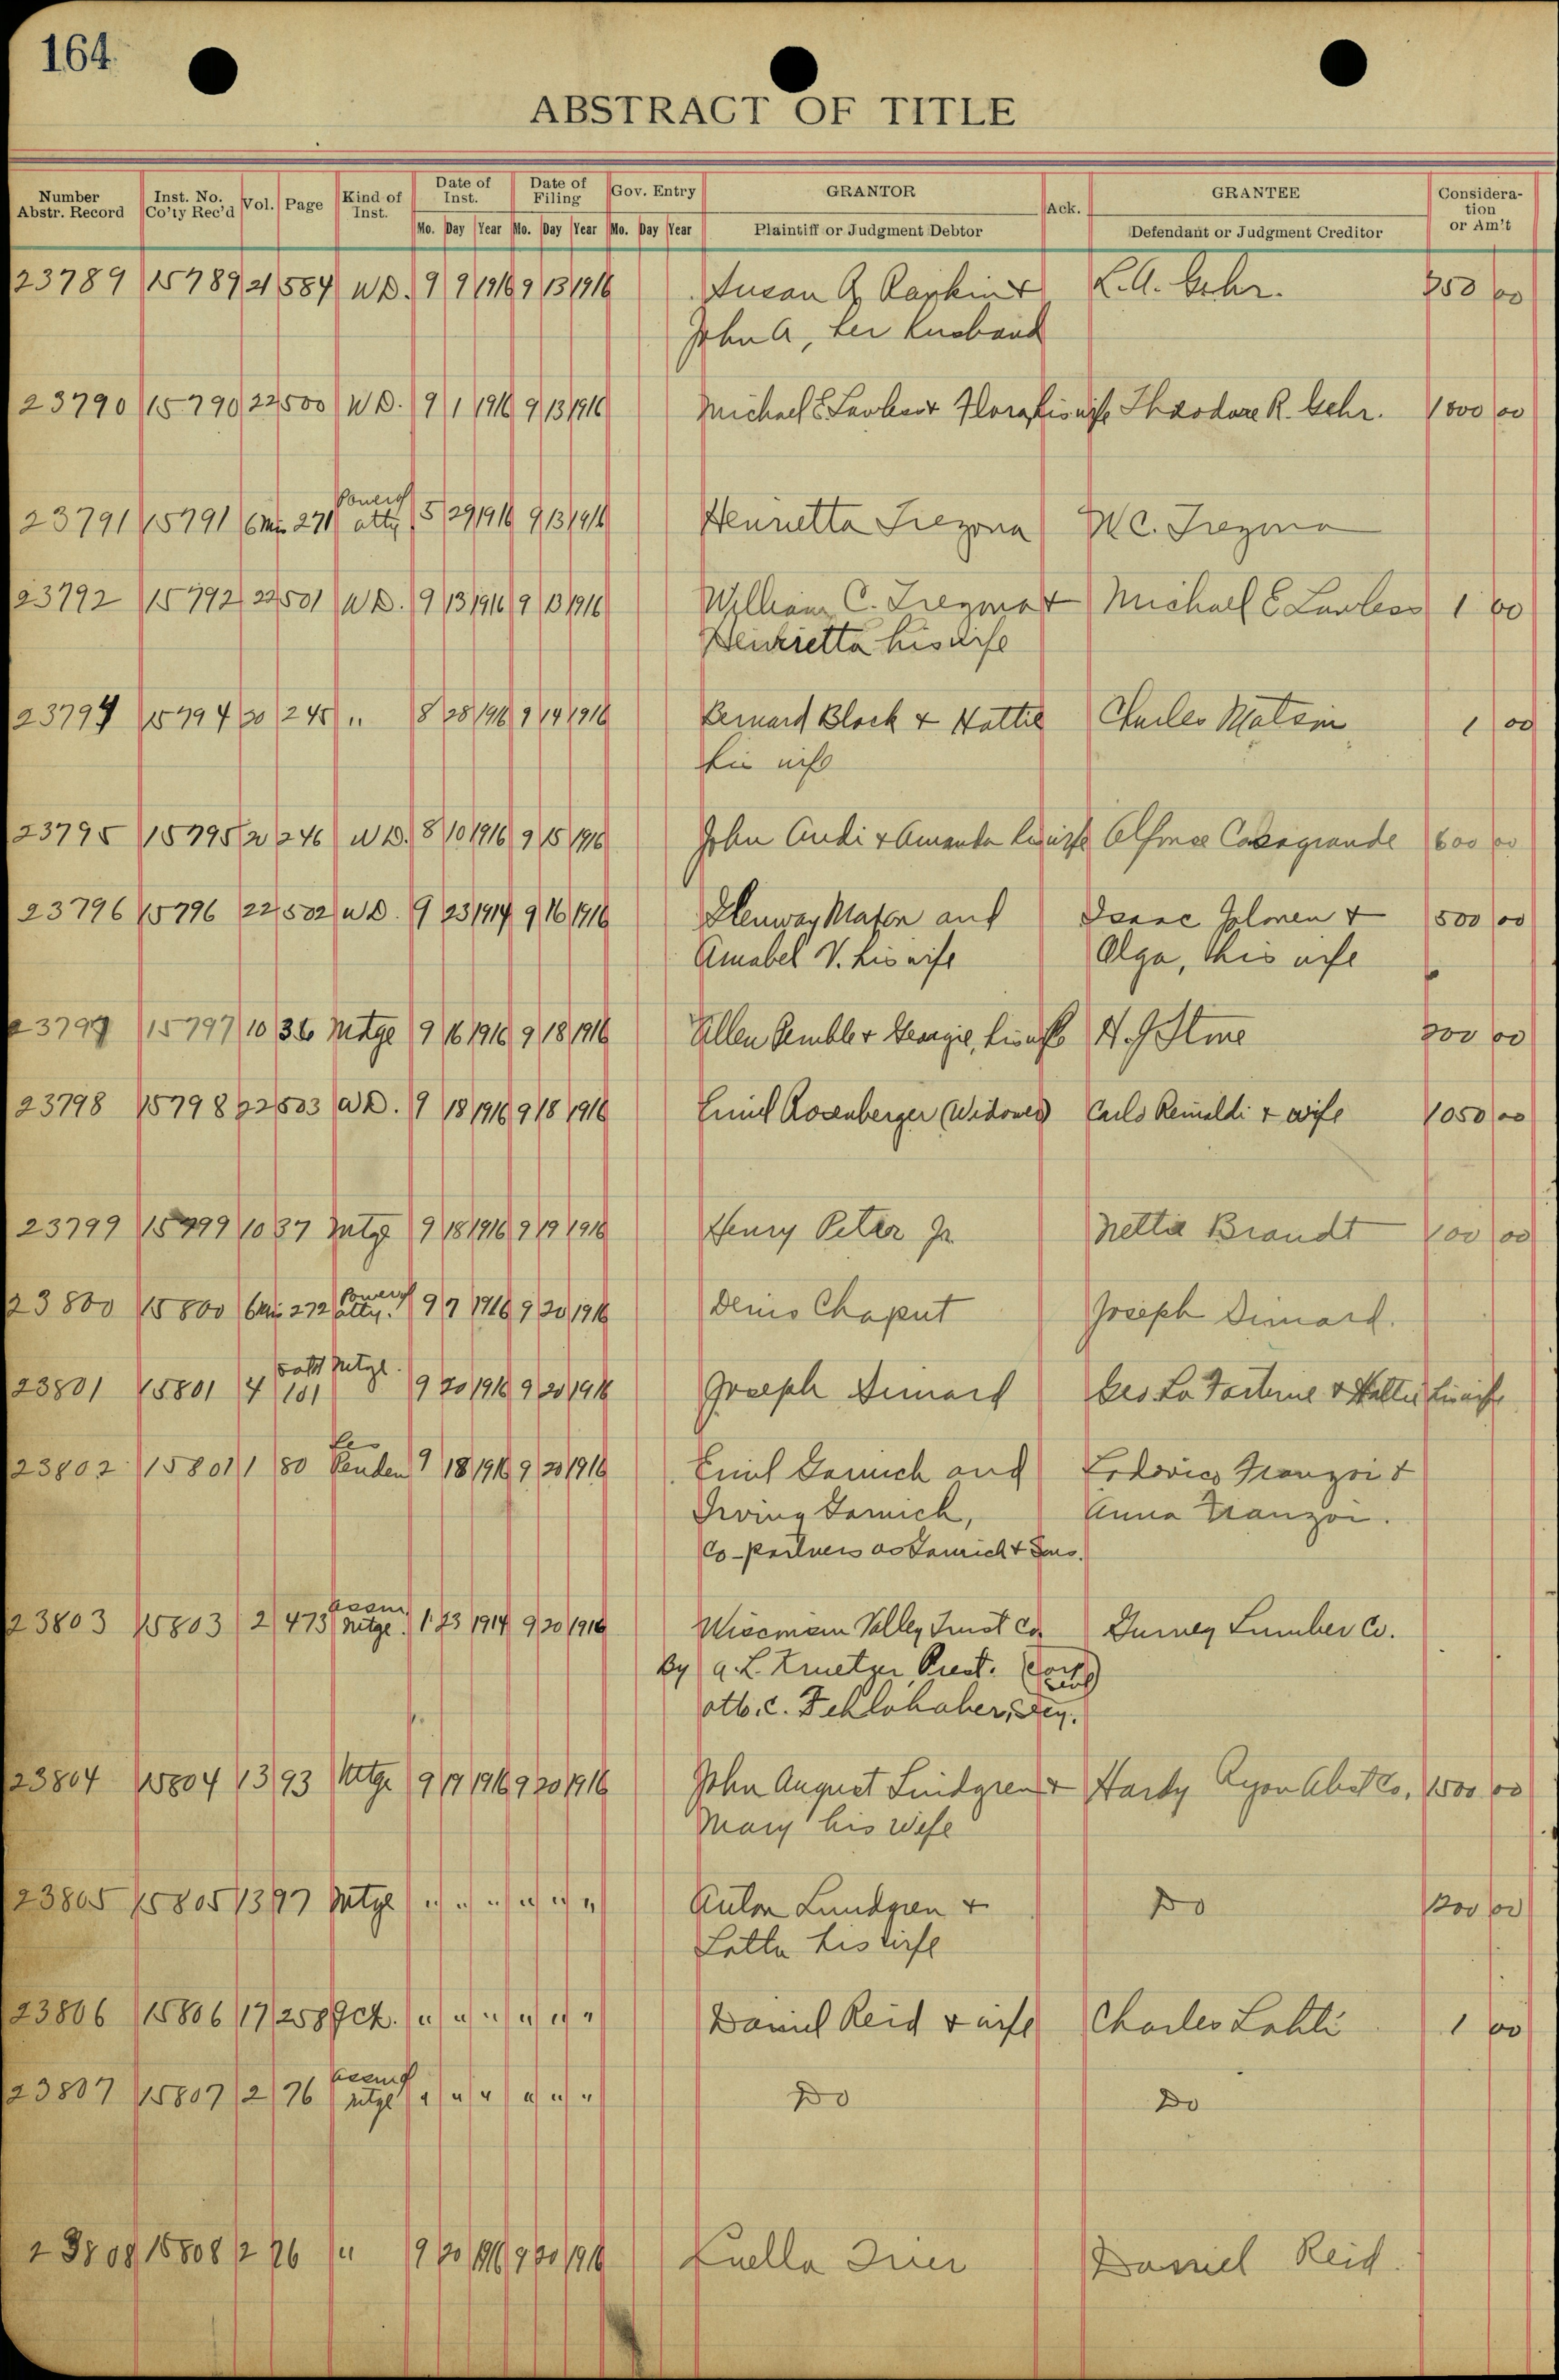 164
ABSTRACT OF TITLE
Number Abstr. Record | Inst. No. Co'ty Rec'd | Vol. | Page | Kind of Inst. | Date of Inst. | Date of Filing | Gov. Entry | GRANTOR | Ack. | GRANTEE | Consideration or Am't
Mo. Day Year Mo. Day Year Mo. Day Year | Plaintiff or Judgment Debtor | Defendant or Judgment Creditor
23789 15789 21 584 W.D. 9 9 1916 9 13 1916 Susan A. & L.A. Gehr. 00
John A, her husband
23790 15790 22 500 W.D. 9 1 1916 9 13 1916 Michael E Lawless & Flora his wife Theodore R. Gehr. 1000 00
Power of
23791 15791 6 Mis 271 atty 5 29 1916 9 13 1916 Henrietta Trezona W.C. Trezona
23792 15792 22 501 W.D. 9 13 1916 9 13 1916 William C. Trezona & Michael E Lawless 1 00
Henrietta his wife
23794 15794 20 245 " 8 28 1916 9 14 1916 Bernard Block & Hattie Charles Matson 1 00
his wife
23795 15795 20 246 W.D. 8 10 1916 9 15 1916 John Audi & Amanda his wife Alfonse Casagrande 600 00
23796 15796 22 502 W.D. 9 23 1914 9 16 1916 and Isaac & 500 00
Amabel V. his wife Olga, his wife
23797 15797 10 36 Mtge 9 16 1916 9 18 1916 Allen & Georgie, his wife 00
23798 15798 22 503 W.D. 9 18 1916 9 18 1916 Emil Rosenberger (Widower) Carlo Reinaldi & wife 1050 00
23799 15799 10 37 Mtge 9 18 1916 9 19 1916 Henry Peter Jr. Nettie Brandt 100 00
Power of
23800 15800 6 Mis 272 atty. 9 7 1916 9 20 1916 Denis Chaput Joseph Simard.
Satf Mtge.
23801 15801 4 101 9 20 1916 9 20 1916 Joseph Simard Geo La Fortune & his wife
Lis
23802 15801 1 80 Penden 9 18 1916 9 20 1916 Emil Garnich and Lodovico Franzoi &
Irving Garnich, Anna Franzoi.
Co-partners as Garnich & Sons.
Assn
23803 15803 2 473 Mtge. 1 23 1914 9 20 1916 Wisconsin Valley Trust Co. Gurney Lumber Co.
By A.L. Kruetzer Prest. (Corp Seal)
23804 15804 13 93 Mtge 9 19 1916 9 20 1916 John August Lindgren & Hardy Ryon Abst Co. 1500 00
Mary his wife
23805 15805 13 97 Mtge " " " " " " Anton Lundgren & Do 00
Lotta his wife
23806 15806 17 258 " " " " " " Daniel Reid & wife Charles Lahti 1 00
Assn of
23807 15807 2 76 Mtge " " " " " " Do Do
23808 15808 2 76 " 9 20 1916 9 20 1916 Luella Daniel Reid.